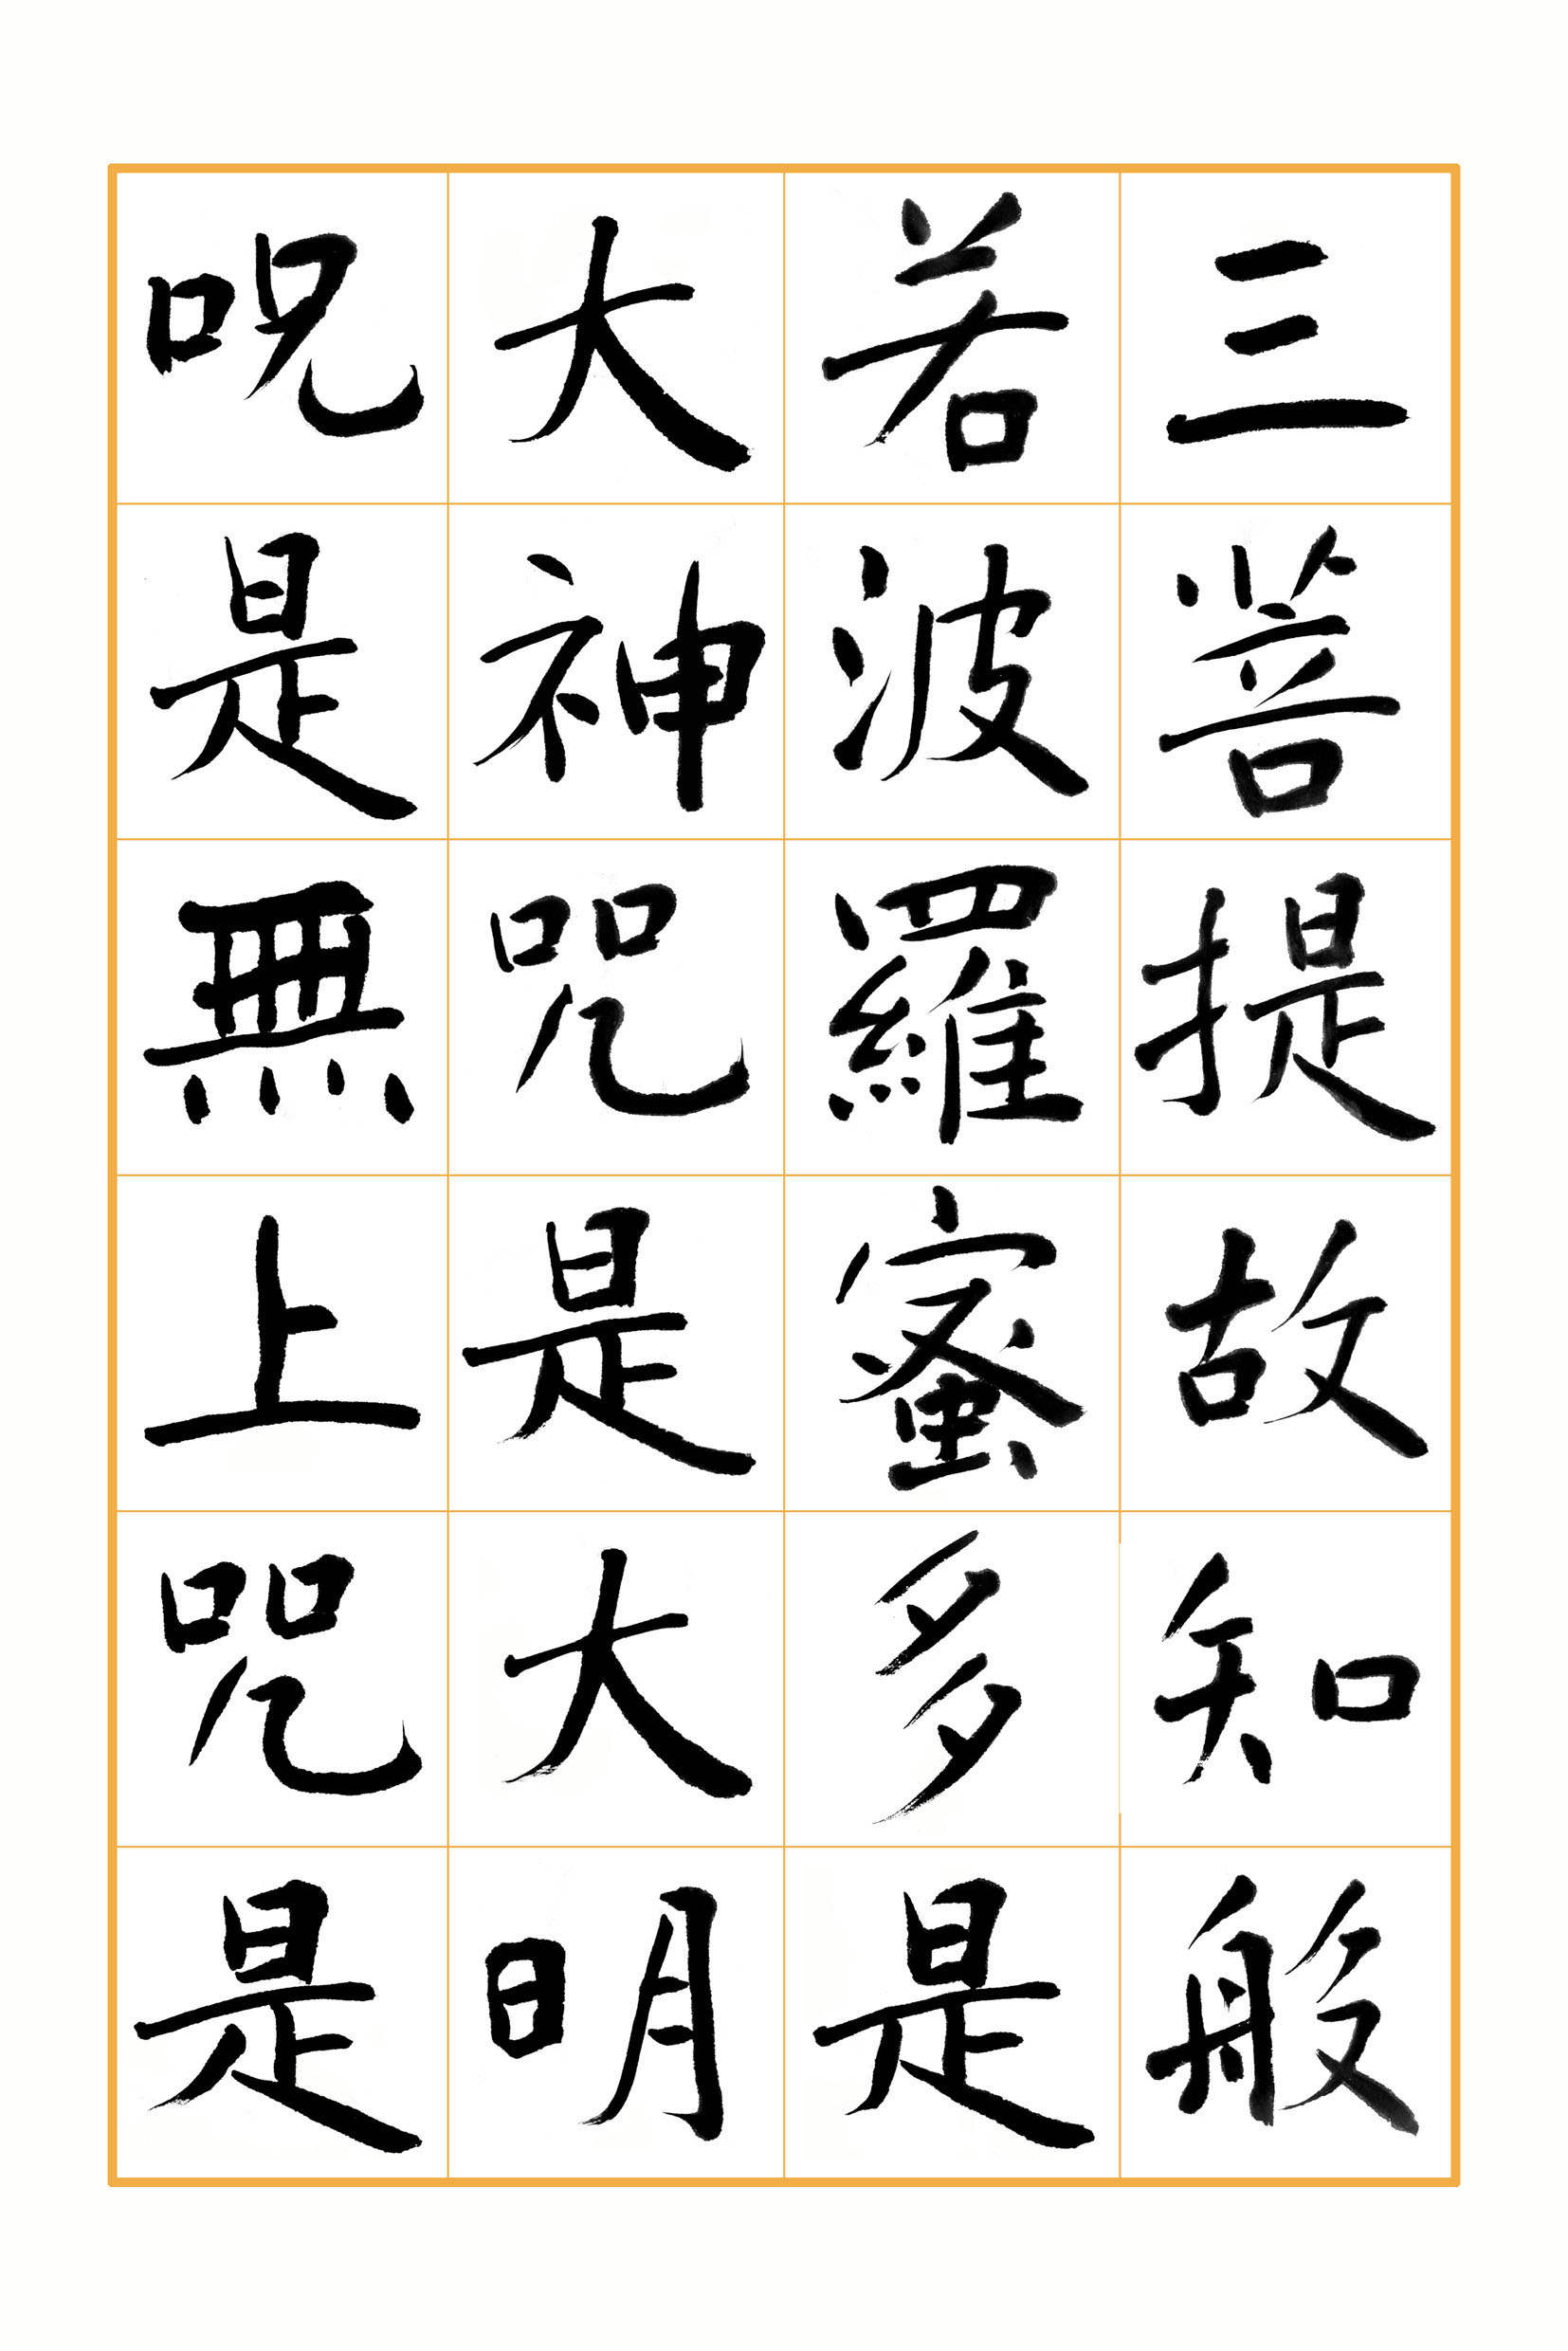 三菩提故知般
若波羅蜜多是
大神咒是大明
呪是無上咒是